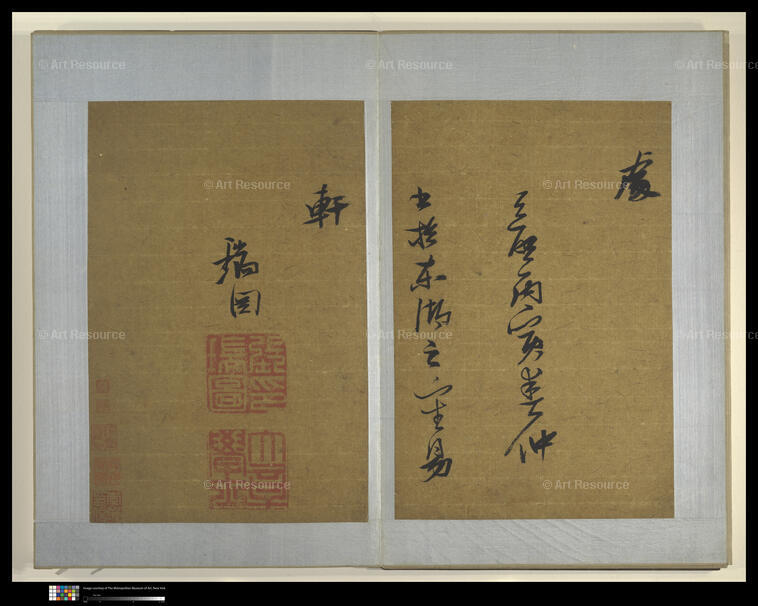 處
天啓丙寅春仲
書於東湖之易
軒
瑞圖
張瑞圖印
© Art Resource
© Art Resource
© Art Resource
© Art Resource
© Art Resource
© Art Resource
© Art Resource
© Art Resource
© Art Resource
© Art Resource
Image courtesy of The Metropolitan Museum of Art, New York